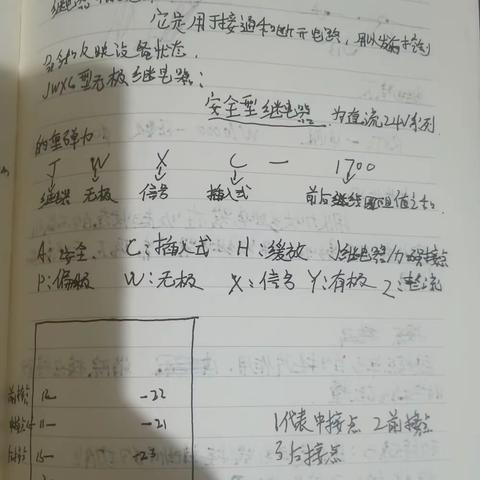 它是用于接通和断开电路，用以发布控制
和反映设备状态．
JWXC型无极继电器：
安全型继电器 为直流24V系列
的重弹力
J W X C — 1700
继电器 无极 信号 插入式 前后继线圈阻值之和．
A：安全． C：插入式 H：缓放 J继电器/加强接点
P：偏极 W：无极 X：信号 Y：有极 Z：整流
前接点 12— —22
中接点 11— —21
后接点 13— —23
1代表中接点 2前接点
3后接点